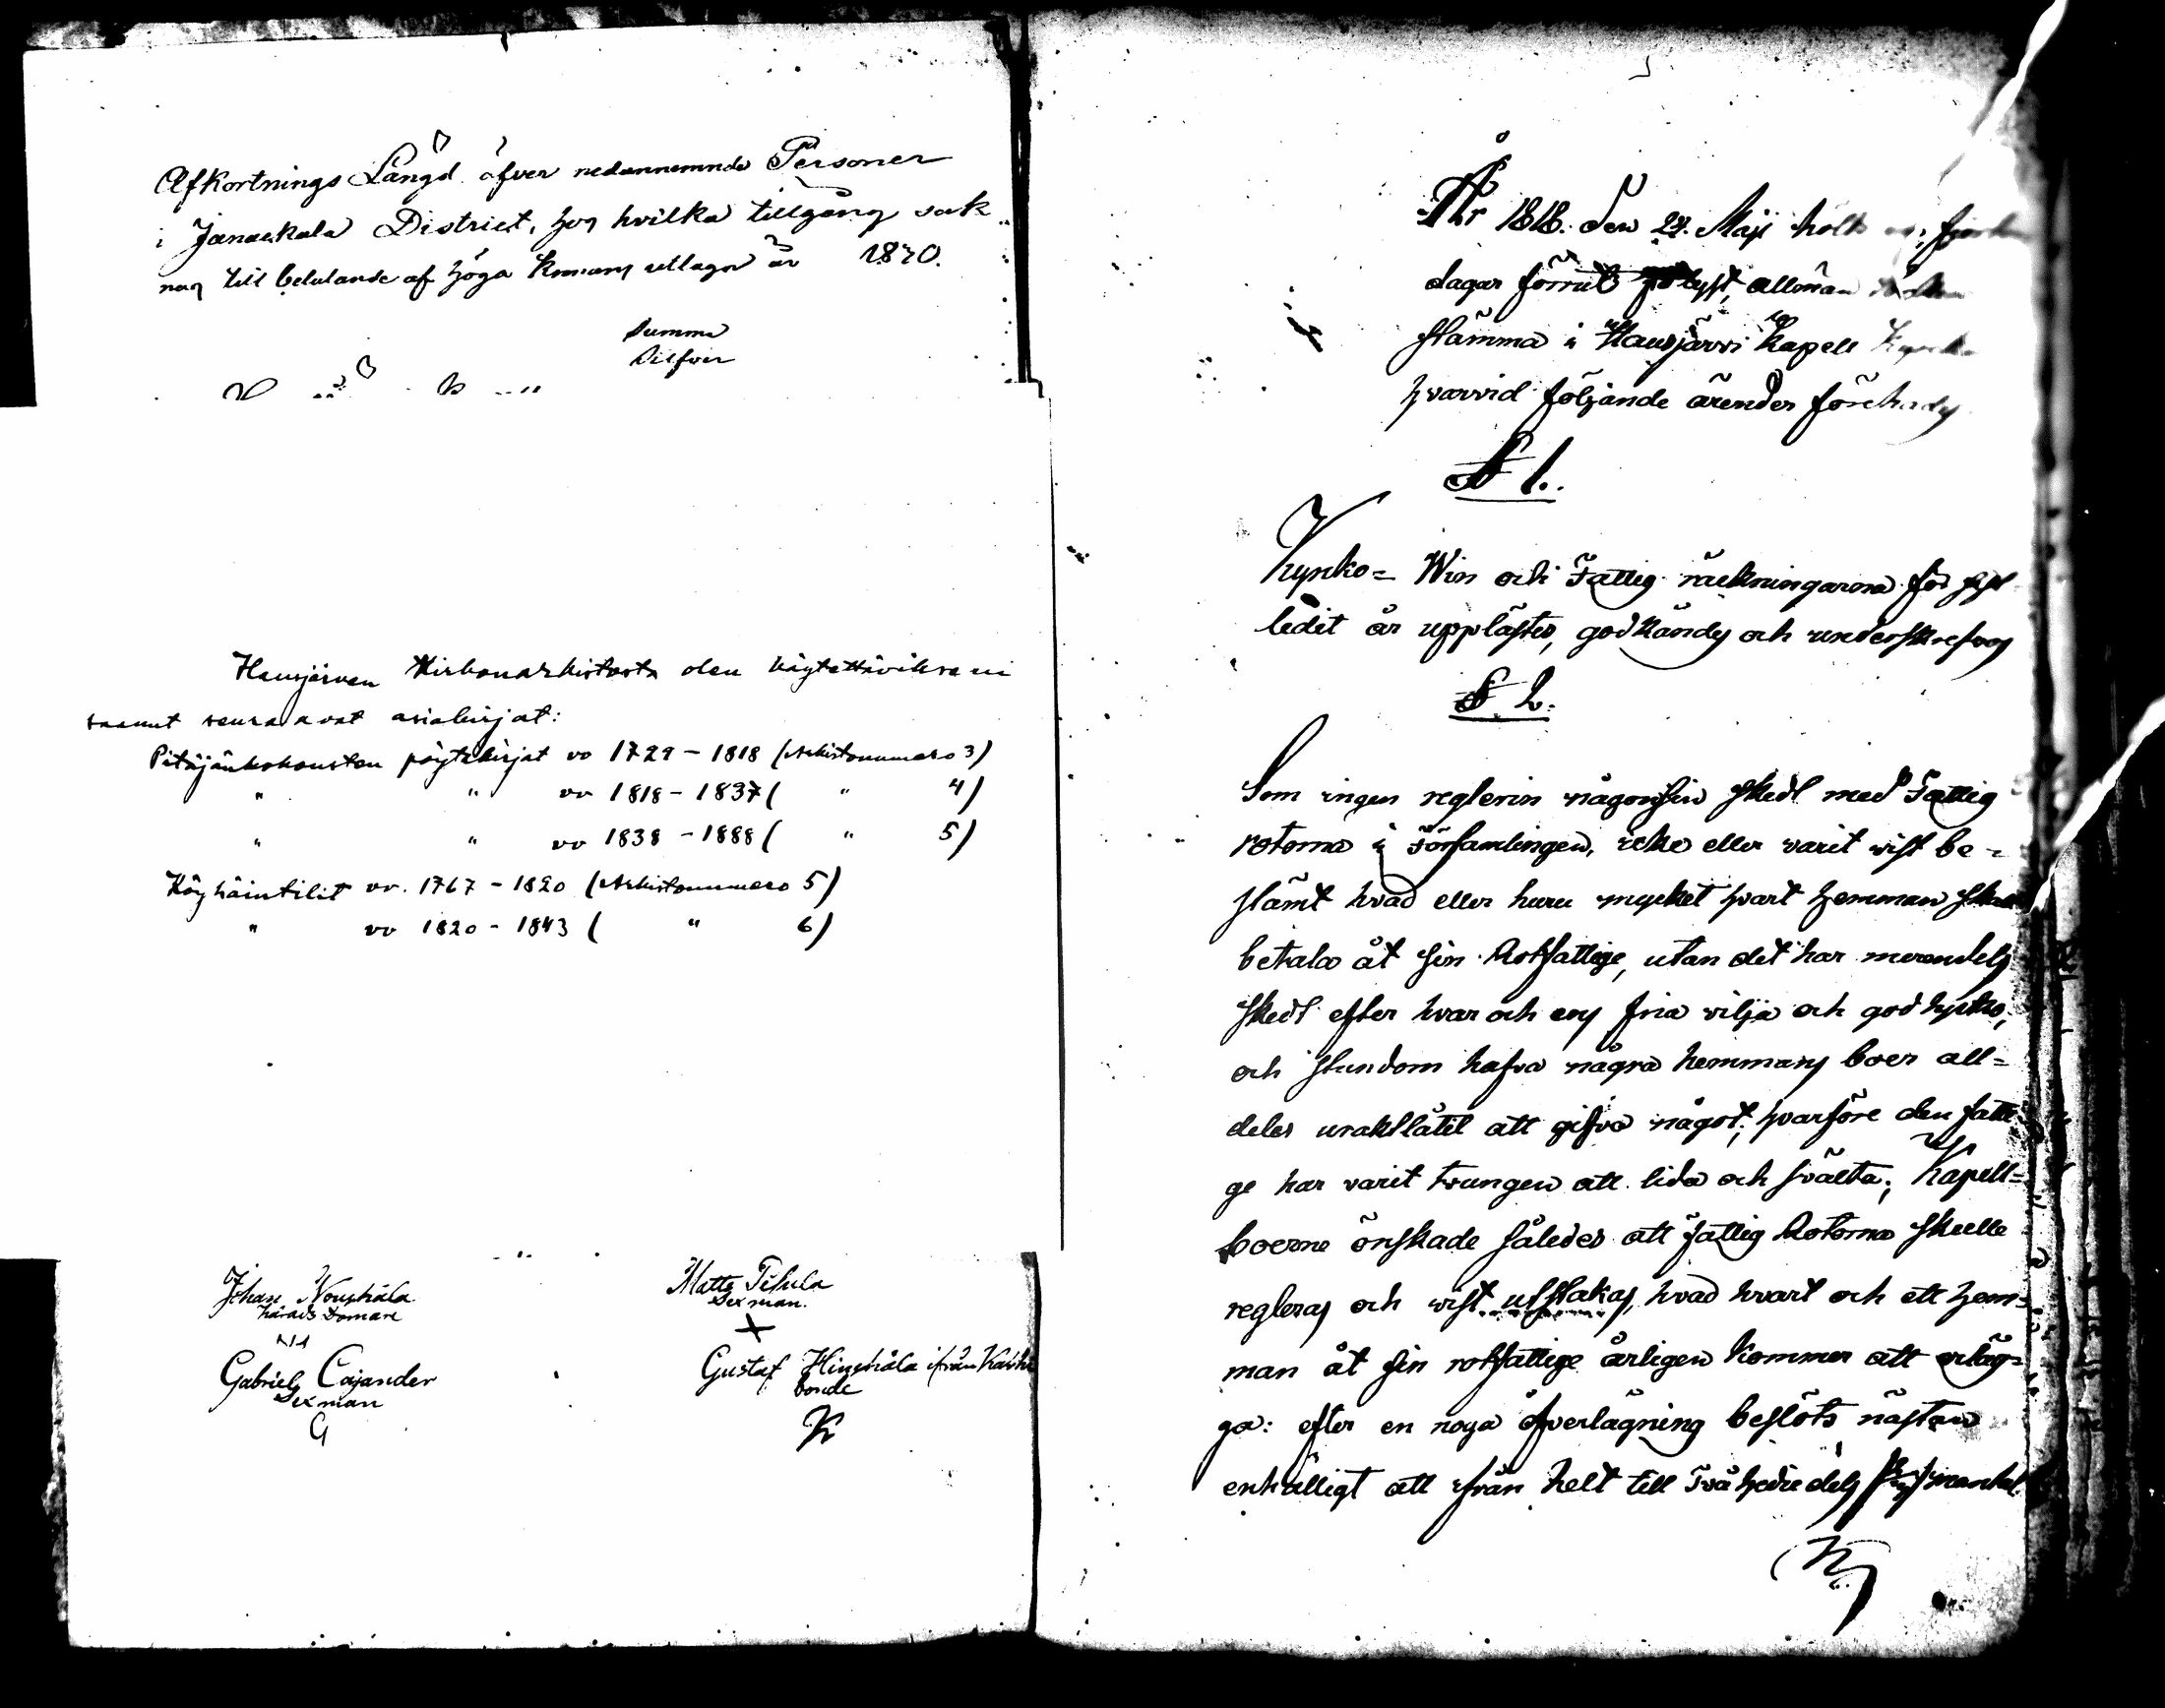 Afkortnings Längd öfver nedannemnde Personer
i Janackala District, hos hvilka tillgång sak
nas till betalande af höga Kronans utlagor år 1820.
Summa
Silfver
Hausjärven Kirkonarkistosta olen käytettäväkseni
saanut seuraavat asiakirjat:
Pitäjänkokousten pöytäkirjat vv 1729 - 1818 (Arkistonumero 3)
" " vv 1818 - 1837 ( " 4)
" " vv 1838 - 1888 ( " 5)
Köyhäintilit vv. 1767 - 1820 (Arkistonumero 5)
" vv 1820 - 1843 ( " 6)
Johan Nouskiala
härads Domare
Gabriels Cajander
Sexman
G
Matts Tikula
Sexman.
Gustaf Hinskiala ifrån
bonde
År 1818. den 24. Maji hölts
dagar förrut allmän
stämma i Hausjärvi Kapell
hvarvid följande ärender förehades
§ 1.
Kyrko= Win och Fattig räckningarna för
ledit år upplästes, godkändes och underskrefvos
§ 2.
Som ingen reglerin någonsin skedt med Fattig
rotorna i Församlingen, icke eller varit vist be-
stämt hvad eller huru mycket hvart hemman skall
betala åt sin Rotfattige, utan det har merendels
skedt efter hvar och ens fria vilja och godtycke,
och stundom hafva några hemmans boer all=
deles uraktlåtit att gifva något; hvarföre den fatti
ge har varit tvungen att lida och svälta; Kapell=
boerne önskade således att fattig Rotorna skulle
regleras och vist utstakas, hvad hvart och ett hem=
man åt sin rotfattige årligen kommer att erläg=
ga: efter en noga öfverlägning beslöts nästan
enhälligt att ifrån helt till två tredie dels mantal